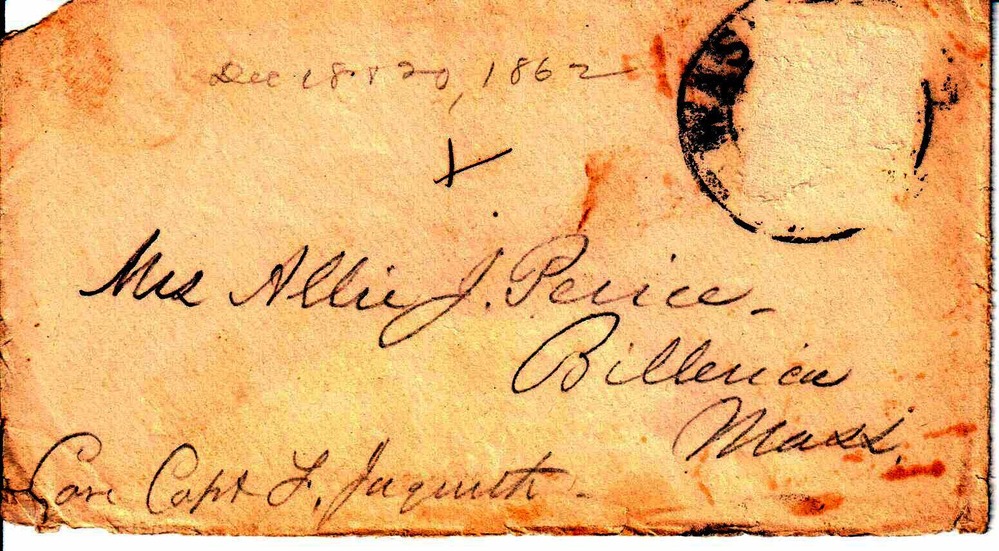 Dec 18 & 20, 1862
WAS
X
Mrs Allie J. Peirce -
Billerica
Mass.
Care Capt F. Jaquith -